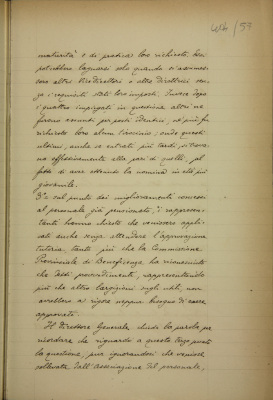 maturità e di pratica loro richiesta, non
potrebbero lagnarsi solo quando si assumes-
sero altri Vicedirettori o altre Direttrici sen-
za i requisiti stati loro imposti. Invece dopo
i quattro impiegati in questione altri ne
furono assunti per posti identici, nè più fu
richiesto loro alcun tirocinio, onde questi
ultimi, anche se entrati più tardi, si trova-
no effettivamente alla pari di quelli, pel
fatto di aver ottenuto la nomina in età più
giovanile.
Sul punto dei miglioramenti concessi
al personale già pensionato, i rappresen-
tanti hanno chiesto che venissero appli-
cati anche senza attendere l'approvazione
tutoria, tanto più che la Commissione
Provinciale di Beneficenza ha riconosciuto
che detti provvedimenti, rappresentando
più che altro largizioni sugli utili, non
avrebbero a rigore neppure bisogno di essere
approvati.
Il Direttore Generale chiede la parola per
ricordare che riguardo a questo terzo punto
la questione, pur ignorandosi che venisse
sollevata dall'Associazione del personale,